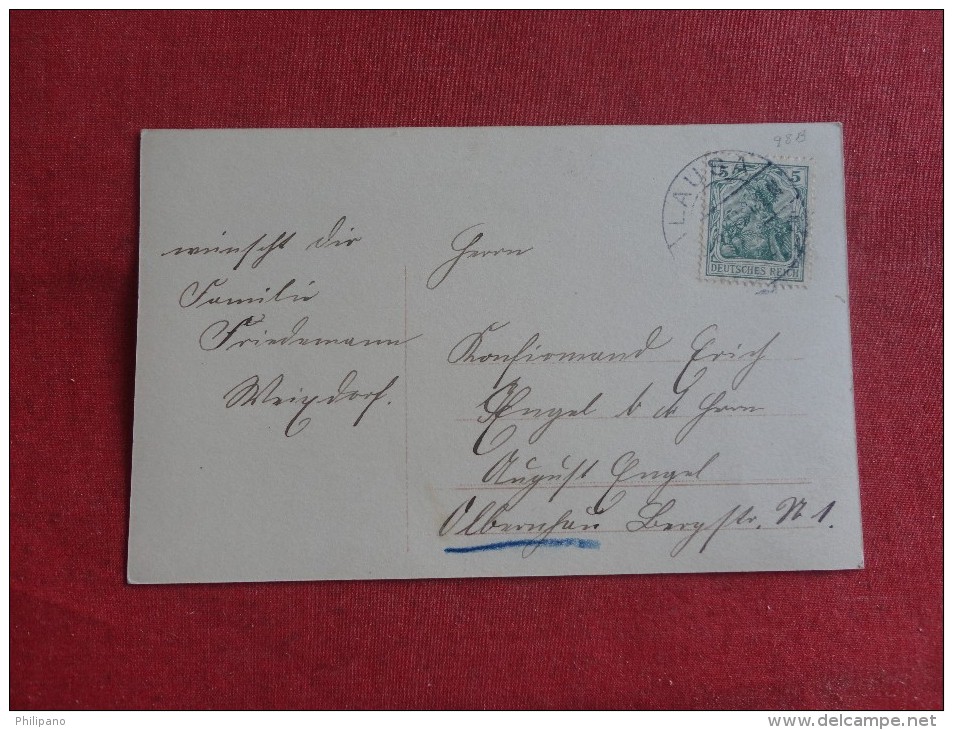 98B
LAUSA
5 5
DEUTSCHES REICH
wünscht dir
Familie
Friedemann
Weixdorf.
Herrn
Konfirmand Erich
Engel b. d. Herrn
August Engel
Olbernhau Bergstr. N 1.
Philipano
www.delcampe.net